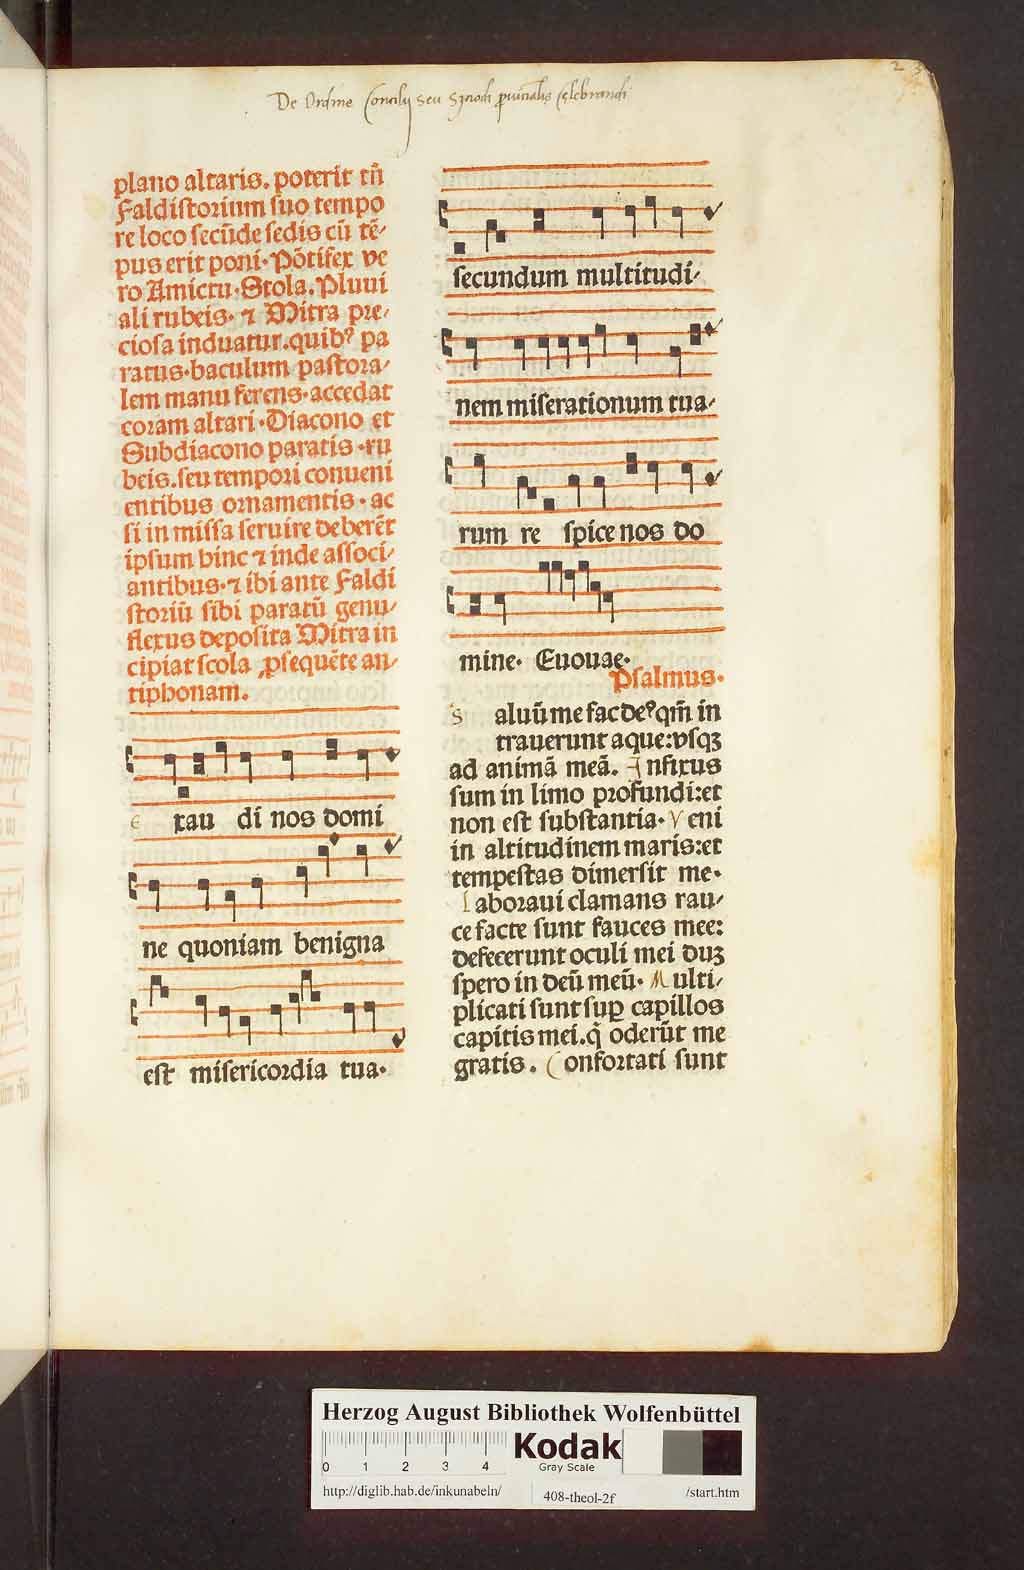 De Ordine Concilij seu Sinodi prouincialis Celebrandi
plano altaris. poterit tñ
Faldistorium suo tempo
re loco secūde sedis cū tē⸗
pus erit poni· Pōtifex ve
ro Amictu·Stola. Pluui
ali rubeis· ⁊ Mitra pre⸗
ciosa induatur.quibꝰ pa
ratus·baculum pastora⸗
lem manu ferens·accedat
coram altari·Diacono et
Subdiacono paratis ·ru
beis.seu tempori conueni
entibus ornamentis· ac
si in missa seruire deberēt
ipsum hinc ⁊ inde associ⸗
antibus·⁊ ibi ante Faldi
storiū sibi paratū genu⸗
flexus deposita Mitra in
cipiat scola ꝓsequēte an⸗
tiphonam.
e xau di nos domi
ne quoniam benigna
est misericordia tua·
secundum multitudi⸗
nem miserationum tua⸗
rum re spice nos do
mine· Euouae·
Psalmus·
S aluū me fac deꝰ qm̄ in
trauerunt aque:vsqꝫ
ad animā meā. Infixus
sum in limo profundi:et
non est substantia· Veni
in altitudinem maris:et
tempestas dimersit me·
Laboraui clamans rau⸗
ce facte sunt fauces mee:
defecerunt oculi mei duꝫ
spero in deū meū· Multi⸗
plicati sunt suꝑ capillos
capitis mei.q̇ oderūt me
gratis. Confortati sunt
Herzog August Bibliothek Wolfenbüttel
0 1 2 3 4
Kodak
Gray Scale
http://diglib.hab.de/inkunabeln/
408-theol-2f
/start.htm